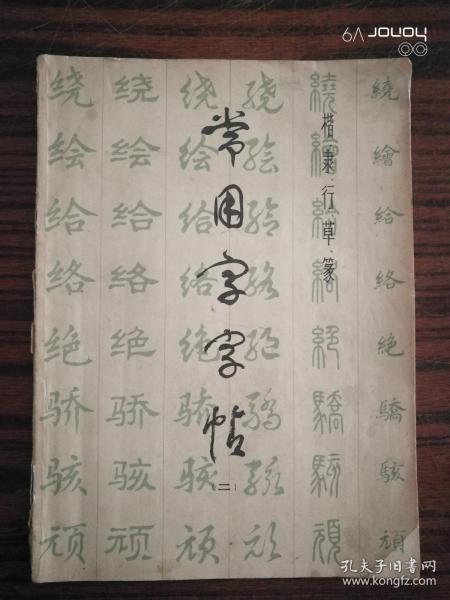 6A JOLOY
楷·隶·行·草·篆
常用字字帖
二
绕 绕 绕 绕 繞 繞
绘 绘 绘 绘 繪 繪
给 给 给 给 給 給
络 络 络 络 絡 絡
绝 绝 绝 绝 絕 絕
骄 骄 骄 骄 驕 驕
骇 骇 骇 骇 駭 駭
顽 顽 顽 顽 頑 頑
孔夫子旧书网
www.kongfz.com